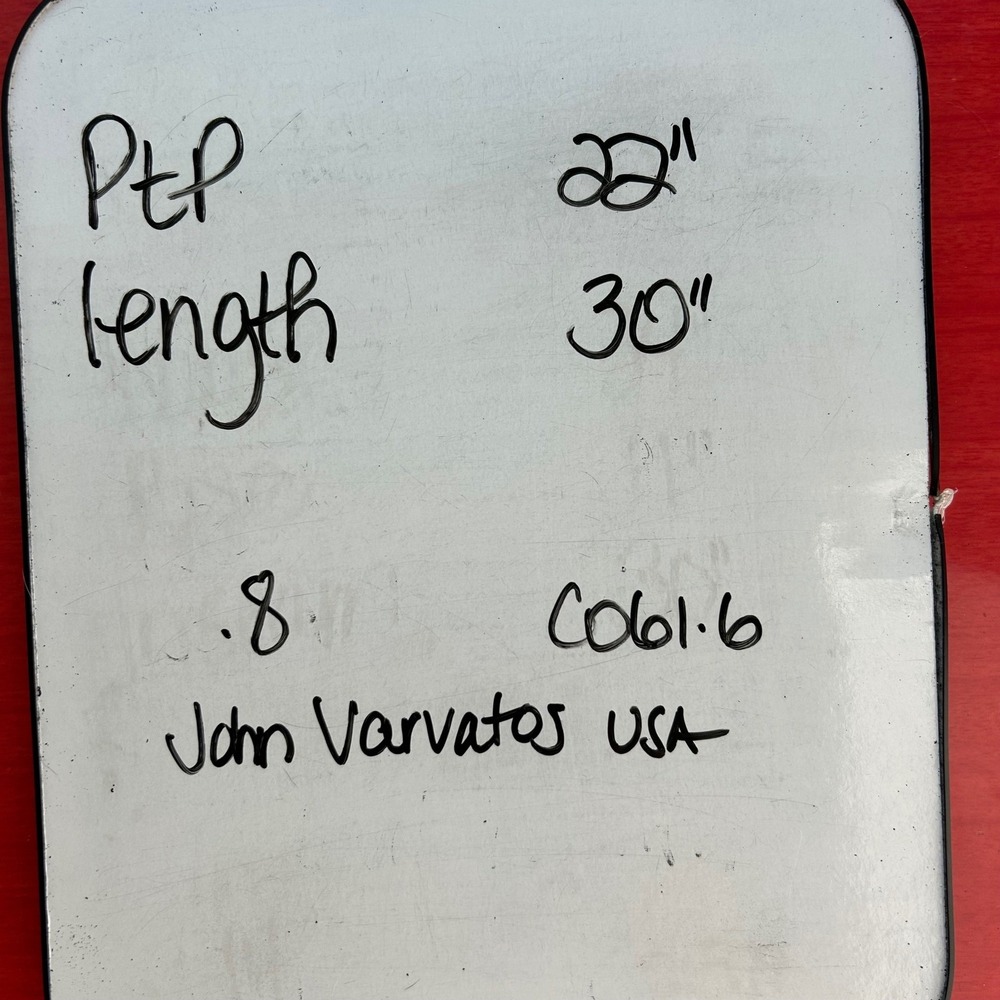 PtP 22"
length 30"
.8 C061.6
John Varvatos USA